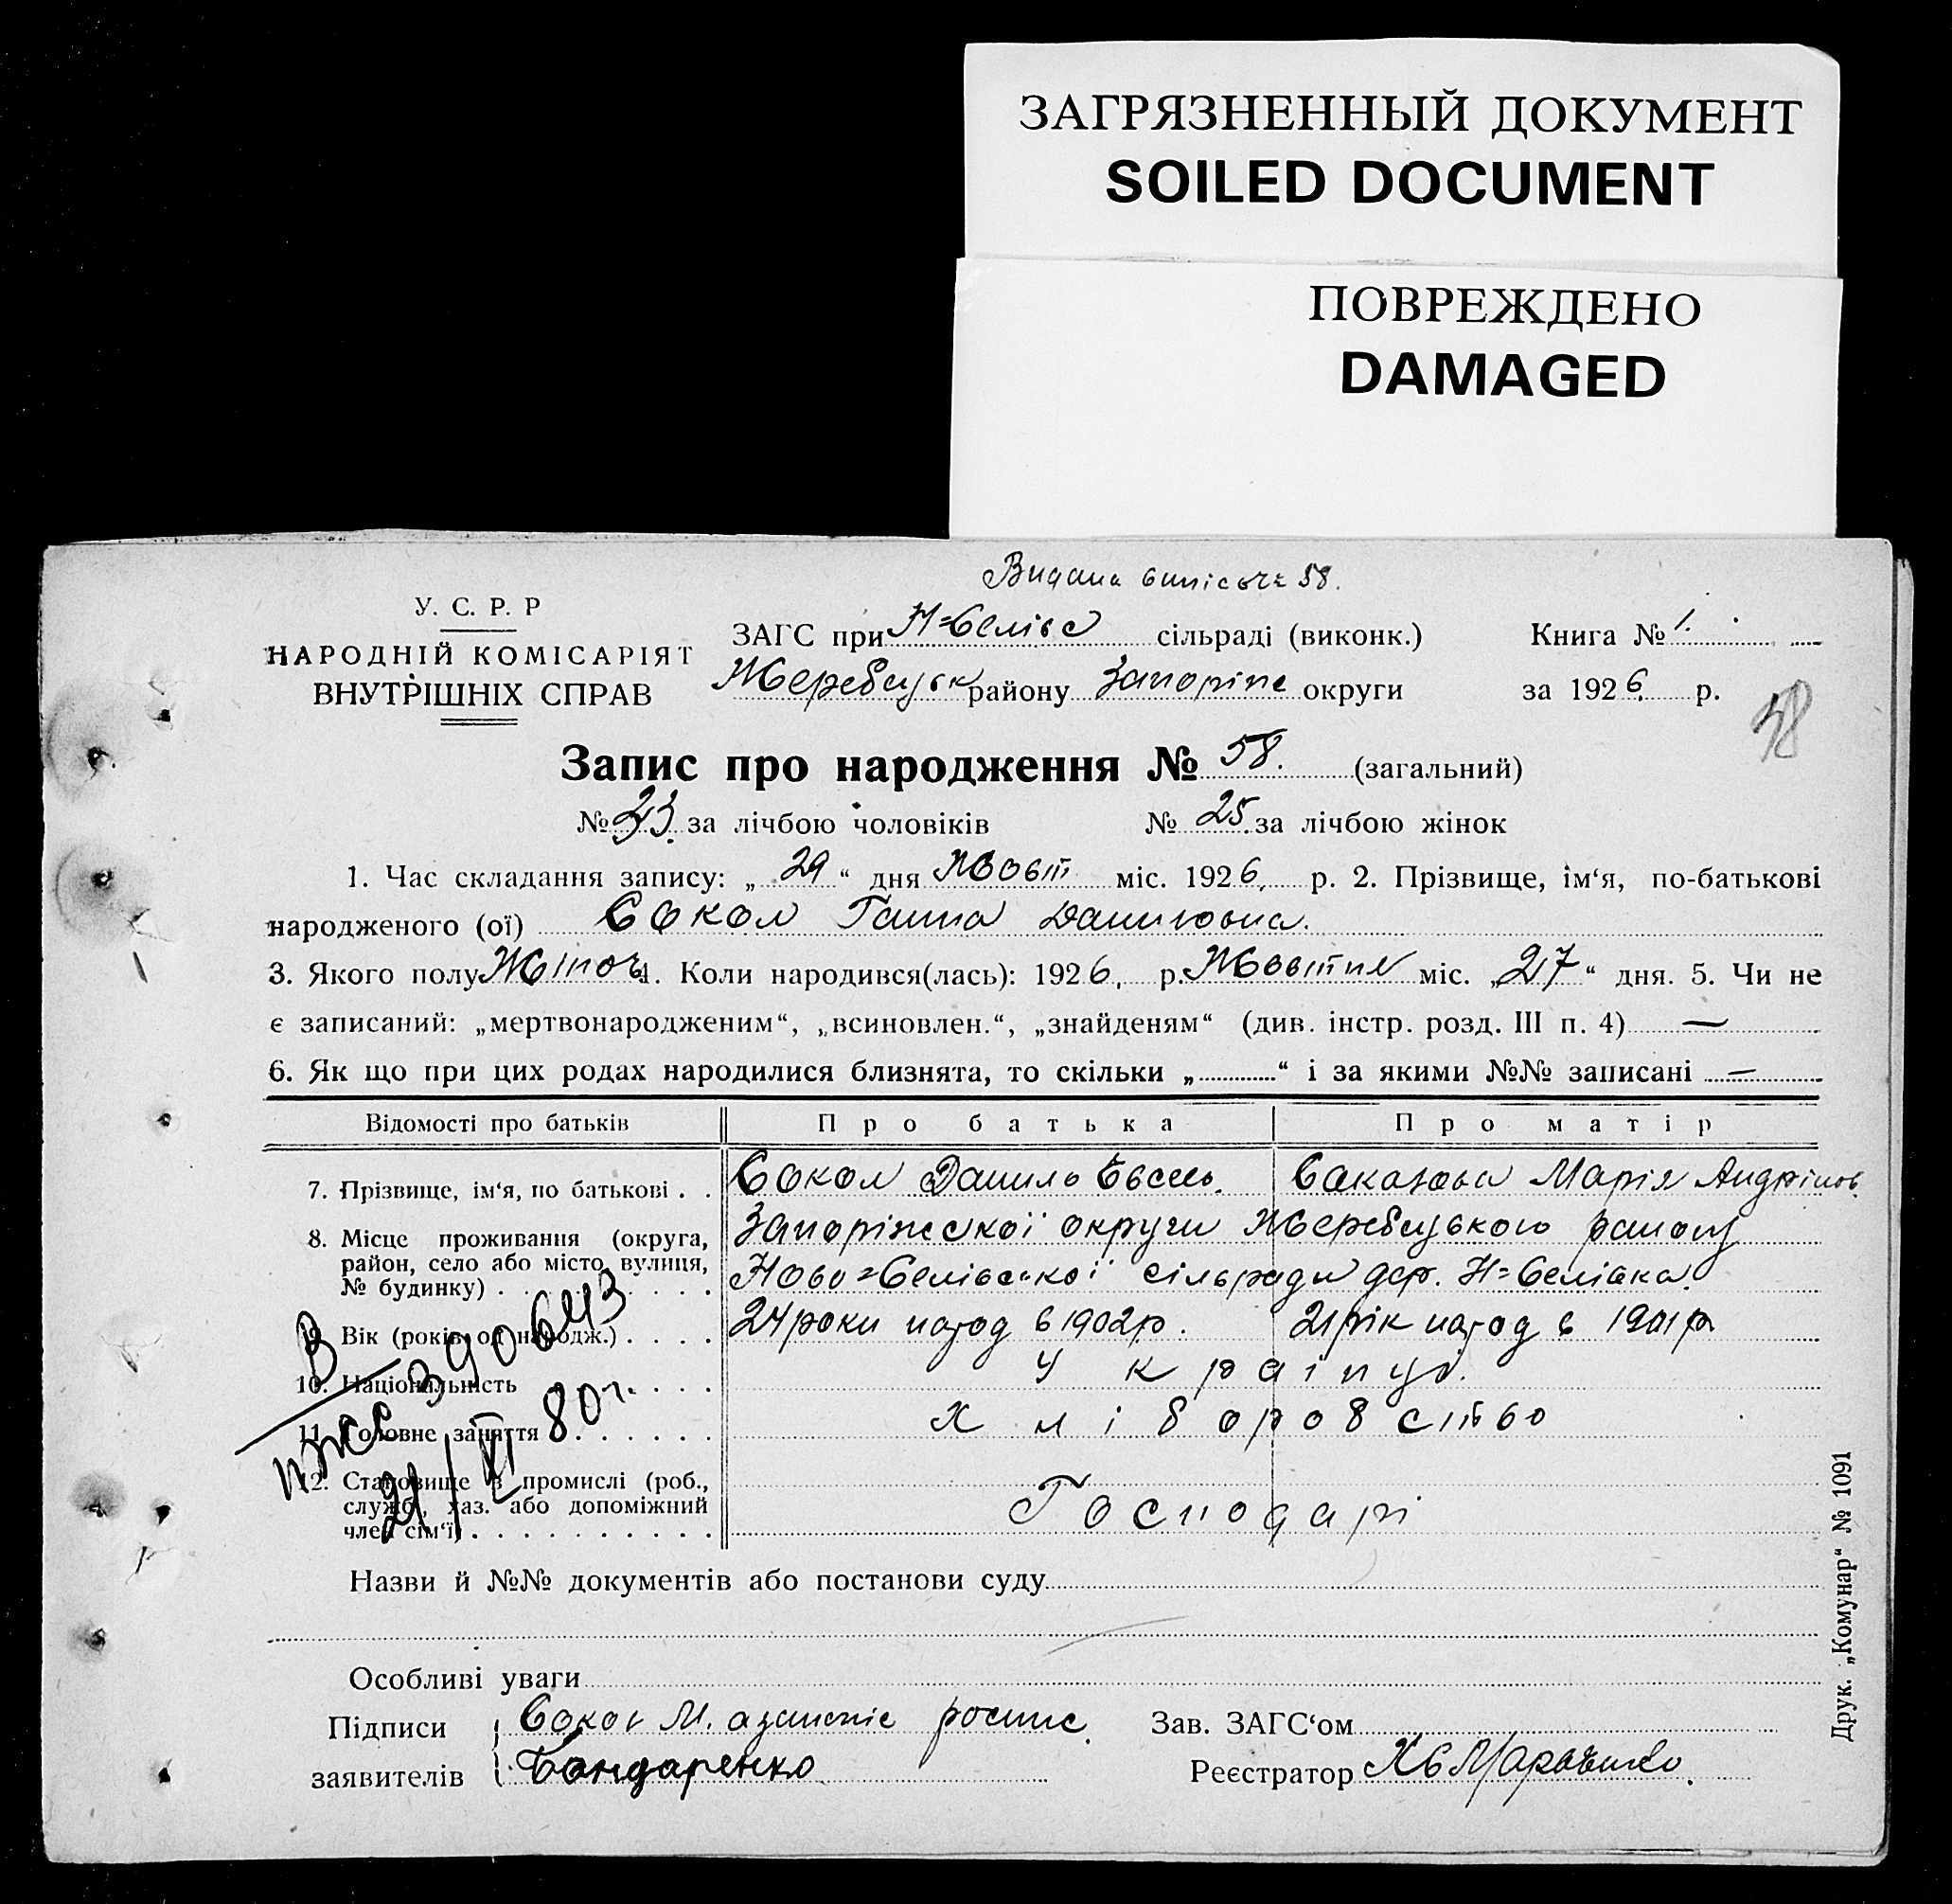 ЗАГРЯЗНЕННЫЙ ДОКУМЕНТ
SOILED DOCUMENT
ПОВРЕЖДЕНО
DAMAGED
Видана 58.
У. С. Р. Р
НАРОДНІЙ КОМІСАРІЯТ
ВНУТРІШНІХ СПРАВ
ЗАГС при Н=Селівс сільраді (виконк.) Книга № 1.
Жеребецьк району Запоріж округи за 1926 р.
58
Запис про народження № 58. (загальний)
№ 33. за лічбою чоловіків № 25 за лічбою жінок
1. Час складання запису: „29“ дня Жовт міс. 1926, р. 2. Прізвище, ім‘я, по-батькові
народженого (ої) Сокол Ганна Данилівна.
3. Якого полу Жіноч 4. Коли народився(лась): 1926, р. Жовтня міс. „27“ дня. 5. Чи не
є записаний: „мертвонародженим“, „всиновлен.“, „знайденям“ (див. інстр. розд. III п. 4) —
6. Як що при цих родах народилися близнята, то скільки „ “ і за якими №№ записані —
Відомості про батьків Про батька Про матір
7. Прізвище, ім‘я, по батькові . . Сокол Данило Євсеев. Марія Андріїв.
8. Місце проживання (округа, район, село або місто, вулиця, № будинку) . . Запоріжської округи Жеребецького району
Ново=Селівської сільради дер. Н=Селівка.
9. Вік (років, од народж.) . . . . 24 роки народ в 1902р. 21 рік народ в 1901р
10. Національність . . . . У к р а ї н ц і.
11. Головне заняття . . . . . . Х л і б о р о б с т в о
12. Становище в промислі (роб., служб., хаз. або допоміжний член сім‘ї) . . . . Г о с п о д а р і
В 390643
21/VI 80г.
Назви й №№ документів або постанови суду
Особливі уваги
Підписи Сокол М. а за неї роспис. Зав. ЗАГС‘ом
заявителів Бондаренко Реєстратор
Друк. „Комунар“ № 1091